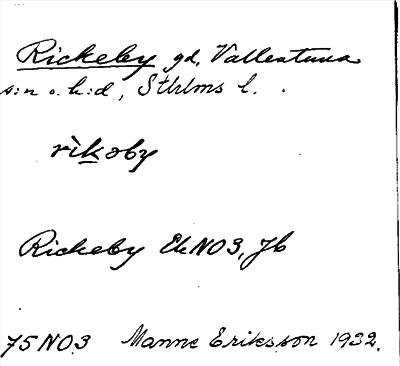 Rickeby gd, Vallentuna
s:n o. h:d, Sthlms l.
rìkəby
Rickeby Ek NO3, Jb
75 NO3 Manne Eriksson 1932.